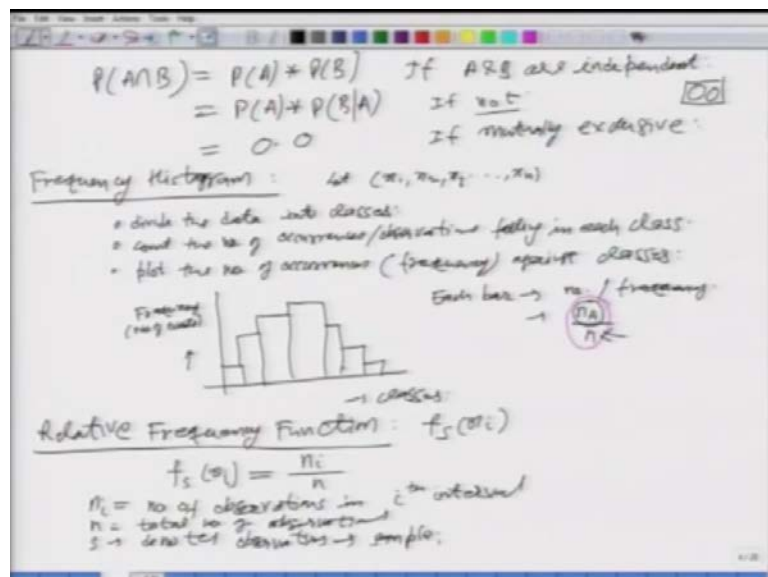 File Edit View Insert Actions Tools Help
P(A∩B) = P(A) * P(B) If A & B are independent.
= P(A) * P(B|A) If not
= 0.0 If mutually exclusive.
Frequency Histogram : Let (x₁, x₂, x₃ ..., xₙ)
• divide the data into classes.
• count the no of occurrences/observations falling in each class.
• plot the no of occurrences (frequency) against classes.
Each bar → no / frequency.
→ n_A
n
Frequency
→ classes.
Relative Frequency Function : fₛ(xᵢ)
fₛ(xᵢ) = nᵢ
n
nᵢ = no of observations in iᵗʰ interval
n = total no of observations
s → denotes observations → sample.